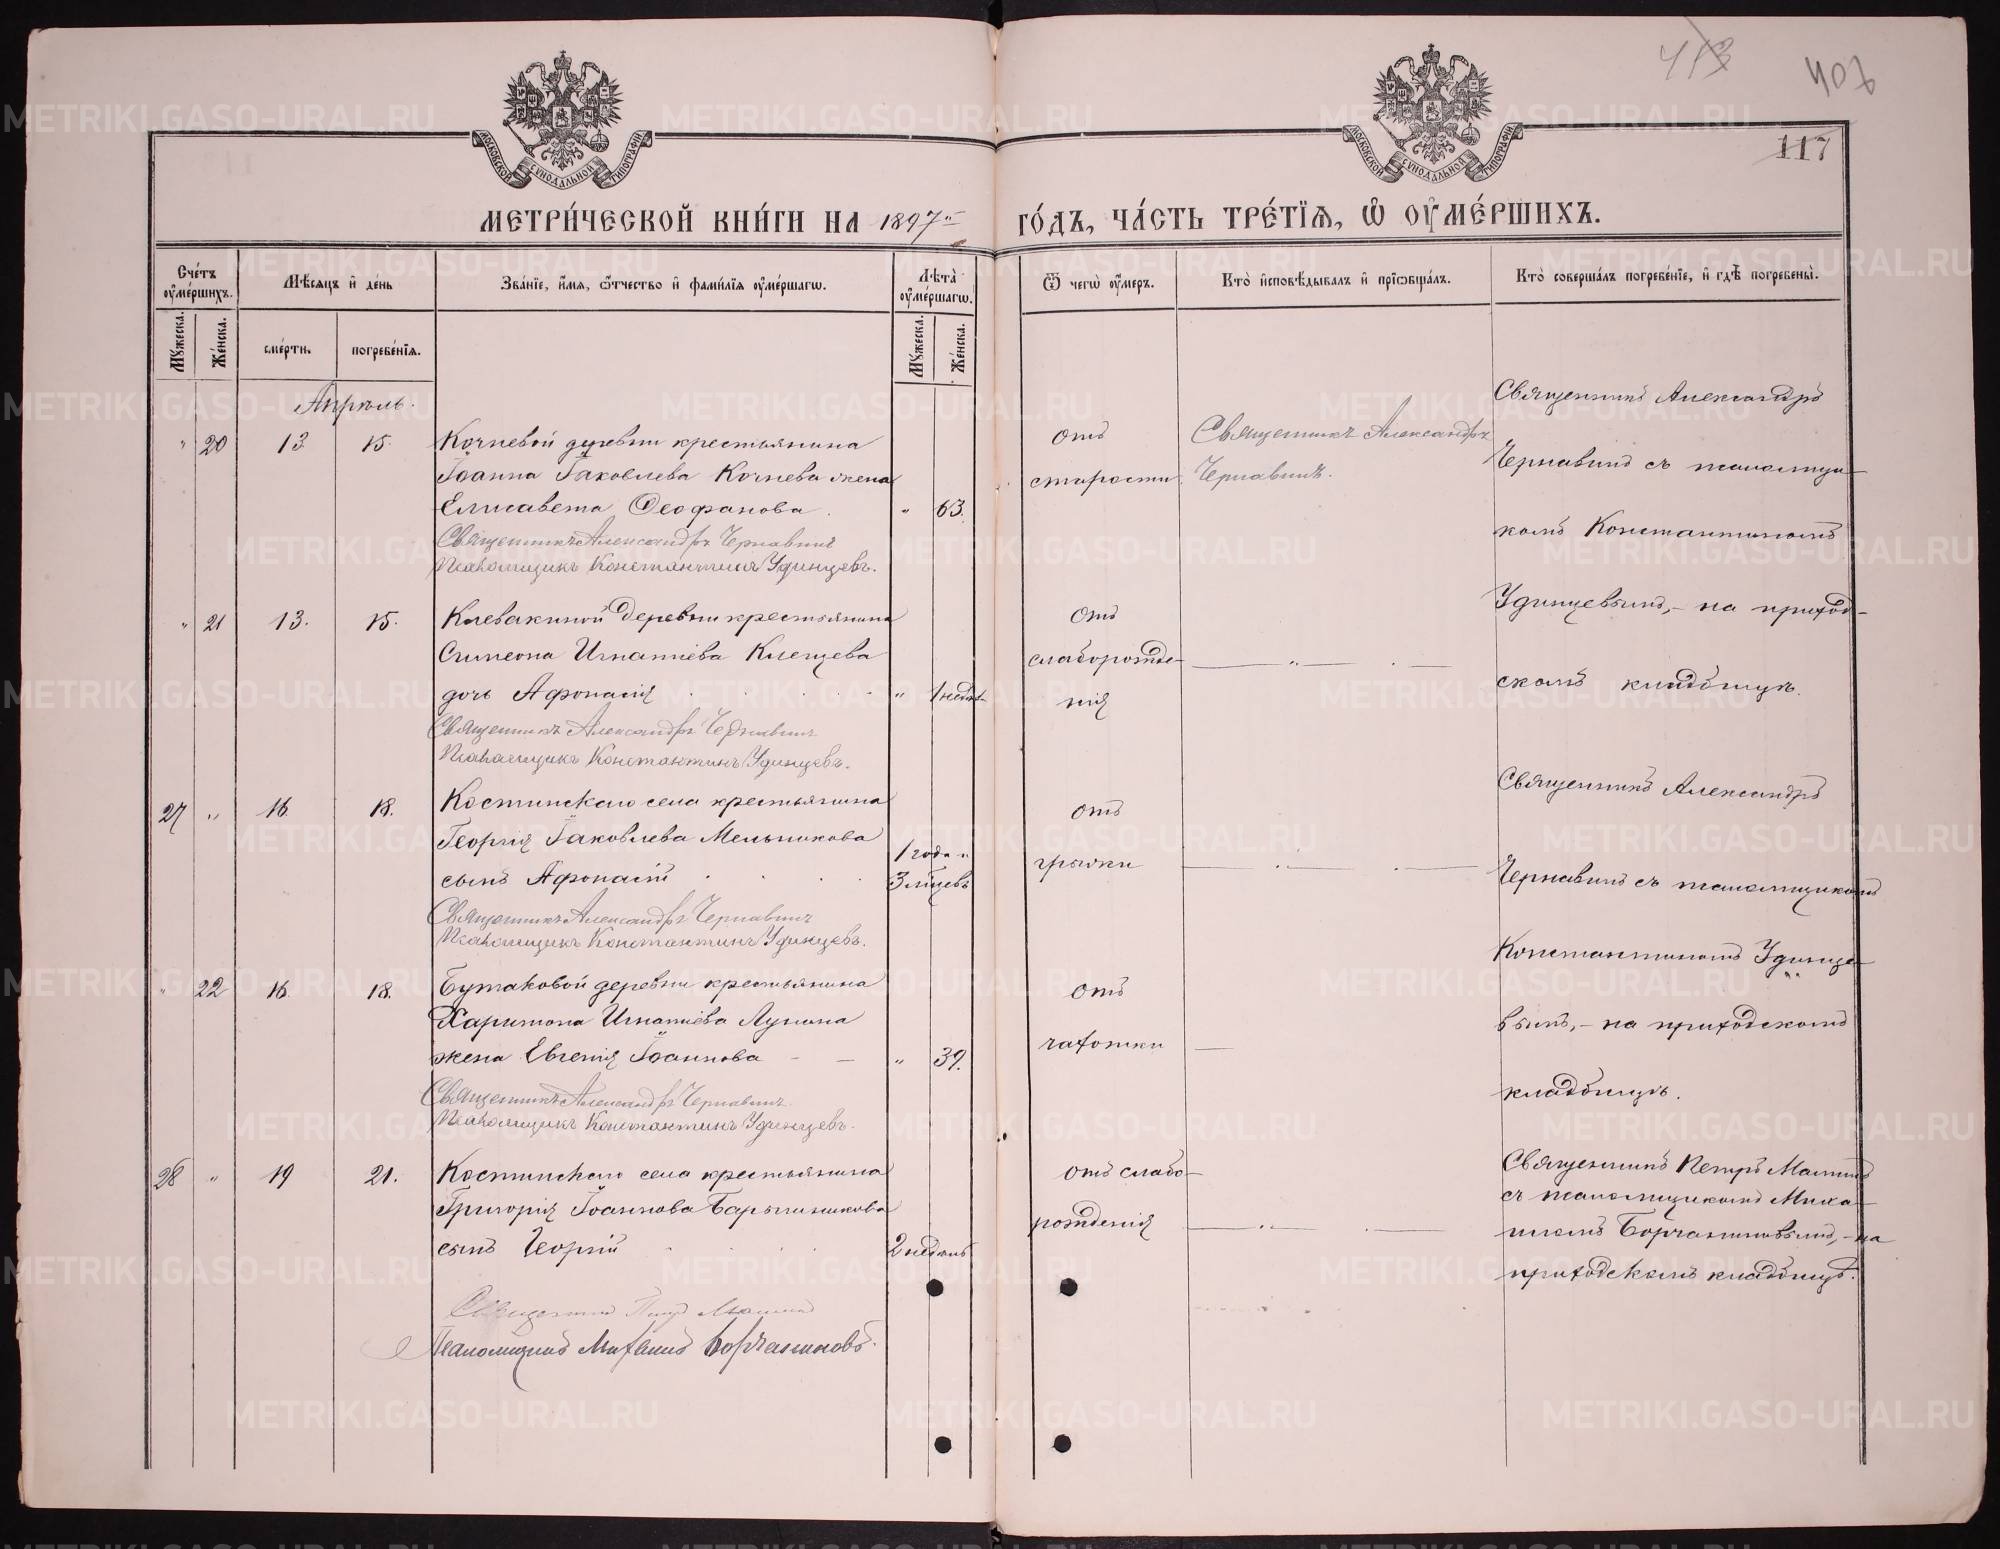 413
407
117
МОСКОВСКОЙ СѴНОДАЛЬНОЙ ТИПОГРАФІИ
МОСКОВСКОЙ СѴНОДАЛЬНОЙ ТИПОГРАФІИ
МЕТРИ́ЧЕСКОЙ КНИ́ГИ НА 1897 ГО́ДЪ, ЧА́СТЬ ТРЕ́ТІѦ, Ѽ ОУМЕ́РШИХЪ.
Сче́тъ оуме́ршихъ.
Мꙋ́жеска.
Же́нска.
Мѣ́сѧцъ и҆ де́нь
сме́рти.
погребе́нїѧ.
Зва́нїе, и҆́мѧ, ѻ҆́тчество и҆ фами́лїѧ оуме́ршагѡ.
Лѣ́та̀ оуме́ршагѡ.
Мꙋ́жеска.
Же́нска.
Ѿ чегѡ̀ оу́меръ.
Кто̀ и҆сповѣ́дывалъ и҆ прїѡбща́лъ.
Кто̀ соверша́лъ погребе́нїе, и҆ гдѣ̀ погребены̀.
Апрѣль.
" 20 13 15. Кочневой деревни крестьянина
Іоанна Іаковлева Кочнева жена
Елисавета Ѳеофанова. " 63.
Священникъ Александръ Чернавинъ
Псаломщикъ Константинъ Удинцевъ.
отъ
старости
Священникъ Александръ
Чернавинъ.
Священникъ Александръ
Чернавинъ съ псаломщи-
комъ Константиномъ
Удинцевымъ,- на приход-
скомъ кладбищѣ.
" 21 13. 15. Клевакиной деревни крестьянина
Симеона Игнатіева Клещева
дочь Афонасія " 1 недѣл.
Священникъ Александръ Чернавинъ
Псаломщикъ Константинъ Удинцевъ.
отъ
слаборожде-
нія
— " —
27 " 16 18. Костинскаго села крестьянина
Георгія Іаковлева Мельникова
1 года "
сынъ Афонасій 3 м̃цевъ
Священникъ Александръ Чернавинъ
Псаломщикъ Константинъ Удинцевъ.
отъ
грыжи
— " —
Священникъ Александръ
Чернавинъ съ псаломщикомъ
Константиномъ Удинце-
вымъ,- на приходскомъ
кладбищѣ.
" 22 16 18. Бутаковой деревни крестьянина
Харитона Игнатіева Лунина
жена Евгенія Іоаннова — — " 39.
Священникъ Александръ Чернавинъ
Псаломщикъ Константинъ Удинцевъ.
отъ
чахотки
—
28 " 19 21. Костинскаго села крестьянина
Григорія Іоаннова Барышникова
сынъ Георгій 2 недѣль
Священникъ Петръ Мамин
Псаломщикъ Михаилъ Борчаниновъ.
отъ слабо-
рожденія
— " —
Священникъ Петръ Маминъ
съ псаломщикомъ Миха-
иломъ Борчаниновымъ,- на
приходскомъ кладбищѣ.
METRIKI.GASO-URAL.RU